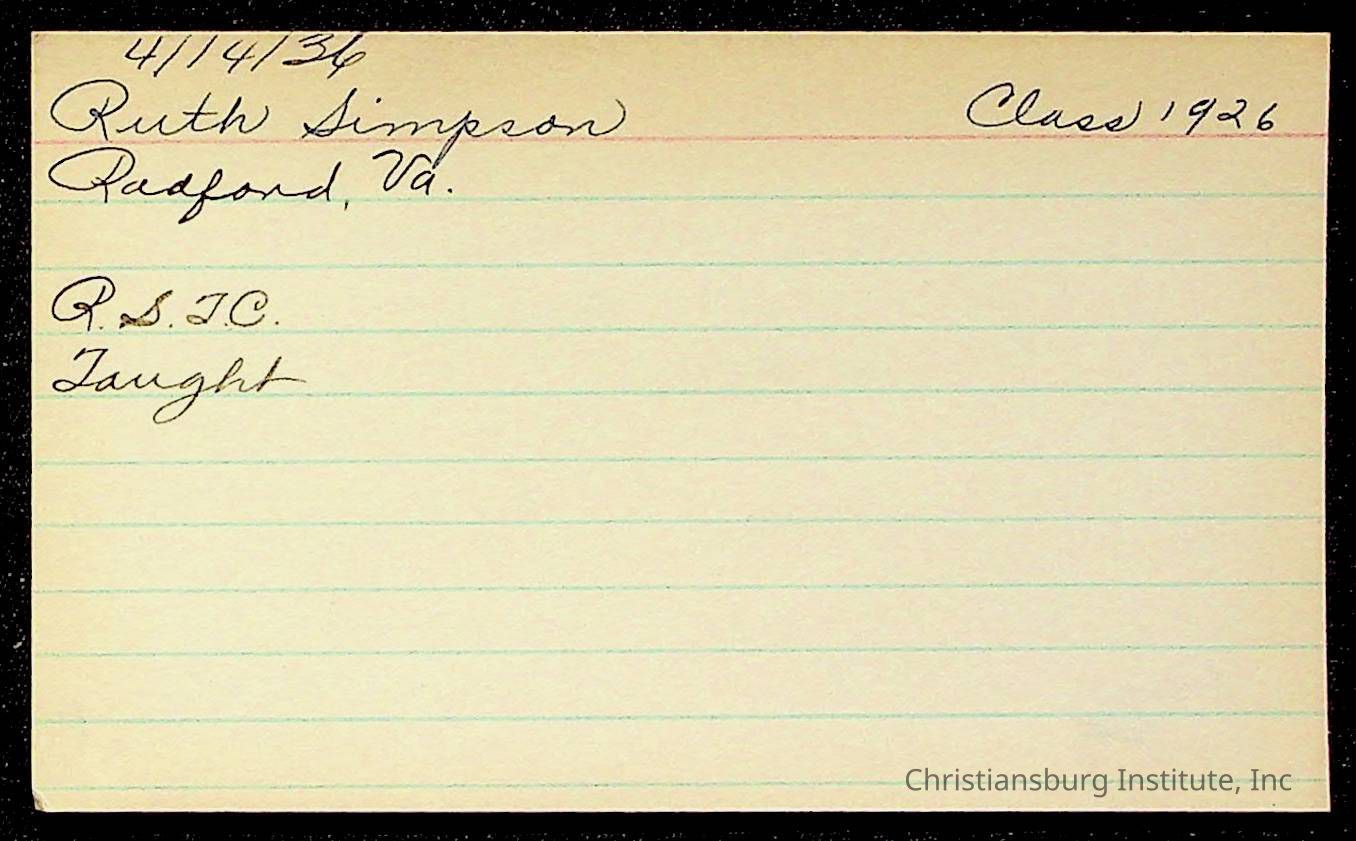 4/14/36
Ruth Simpson Class 1926
Radford, Va.
R. S. T. C.
Taught
Christiansburg Institute, Inc